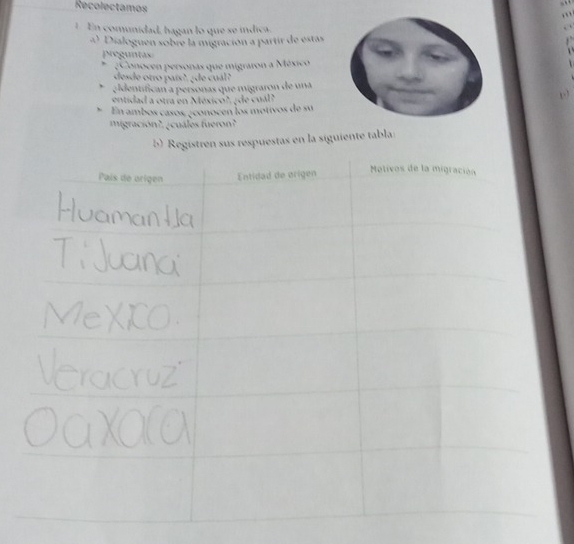 Recolectamos
1. En comunidad, hagan lo que se indica.
a) Dialoguen sobre la migración a partir de estas
preguntas:
• ¿Conocen personas que migraron a México
desde otro país?, ¿de cuál?
• ¿Identifican a personas que migraron de una
entidad a otra en México?, ¿de cuál?
• En ambos casos, ¿conocen los motivos de su
migración?, ¿cuáles fueron?
b) Registren sus respuestas en la siguiente tabla:
País de origen Entidad de origen Motivos de la migración
Huamantla
Tijuana
Mexico.
Veracruz
Oaxaca